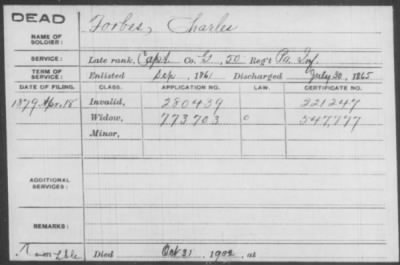 DEAD
NAME OF SOLDIER: Forbes, Charles
SERVICE: Late rank, Capt. Co. G, 50 Reg't Pa. Inf.
TERM OF SERVICE: Enlisted Sep , 1861 Discharged July 30, 1865
DATE OF FILING. CLASS. APPLICATION NO. LAW. CERTIFICATE NO.
1879 Apr. 18 Invalid, 280439 221247
Widow, 773703 0 547,777
Minor,
ADDITIONAL SERVICES:
REMARKS:
Died Oct 21 1902, at